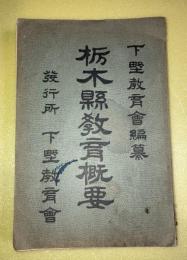 下野敎育會編纂
栃木縣敎育槪要
發行所 下野敎育會